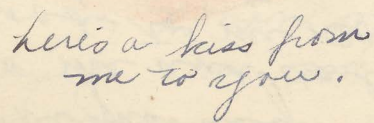 here's a kiss from
me to you.